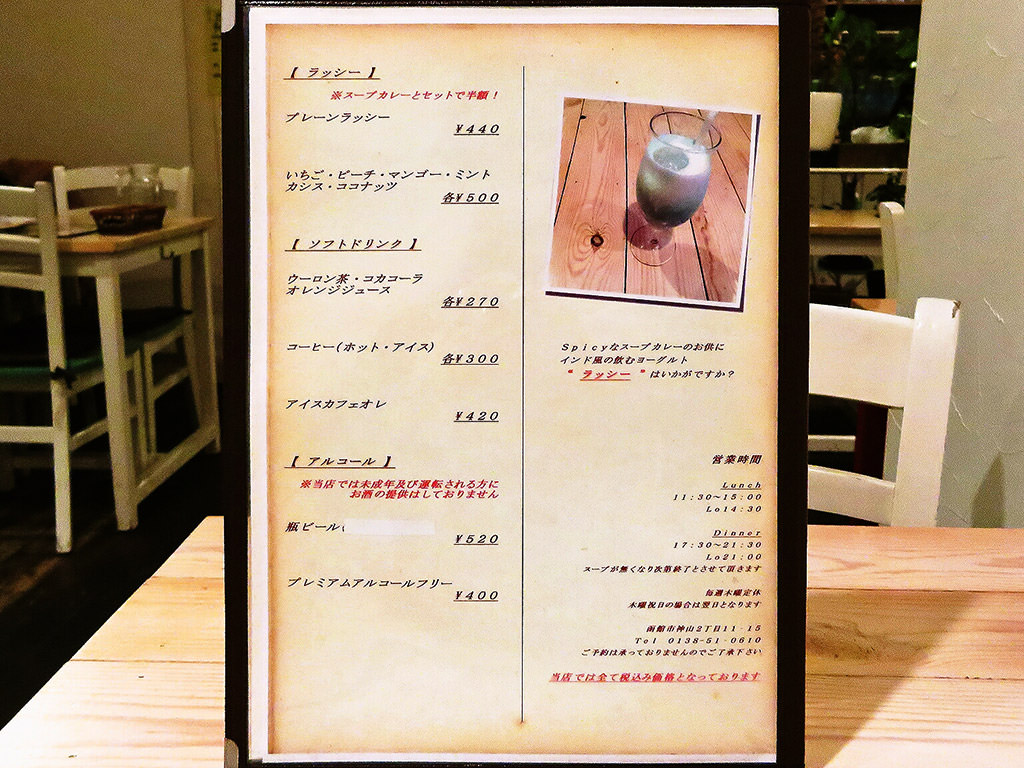 【 ラッシー 】
※スープカレーとセットで半額！
プレーンラッシー
¥440
いちご・ピーチ・マンゴー・ミント
カシス・ココナッツ
各¥500
【 ソフトドリンク 】
ウーロン茶・コカコーラ
オレンジジュース
各¥270
コーヒー(ホット・アイス)
各¥300
アイスカフェオレ
¥420
【 アルコール 】
※当店では未成年及び運転される方に
お酒の提供はしておりません
瓶ビール(
¥520
プレミアムアルコールフリー
¥400
Spicyなスープカレーのお供に
インド風の飲むヨーグルト
“ ラッシー ”はいかがですか？
営業時間
Lunch
11:30～15:00
Lo14:30
Dinner
17:30～21:30
Lo21:00
スープが無くなり次第終了とさせて頂きます
毎週木曜定休
木曜祝日の場合は翌日となります
函館市神山2丁目11-15
Tel 0138-51-0610
ご予約は承っておりませんのでご了承下さい
当店では全て税込み価格となっております